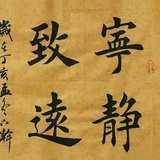 寧靜
致遠
歲在丁亥孟冬